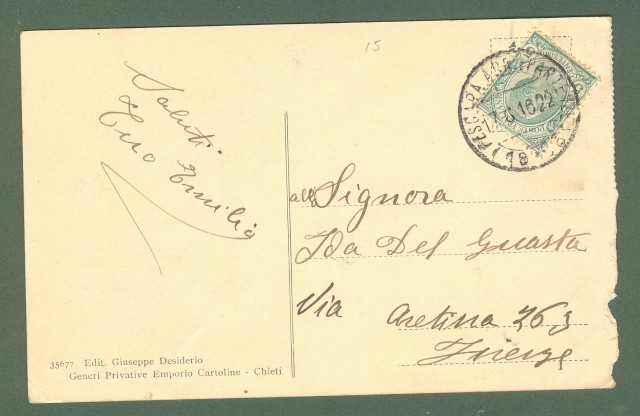 15
Saluti
Tuo Emilio
alla Signora
Ida Del Guasta
Via Aretina 263
Firenze
35677 Edit. Giuseppe Desiderio
Generi Privative Emporio Cartoline - Chieti